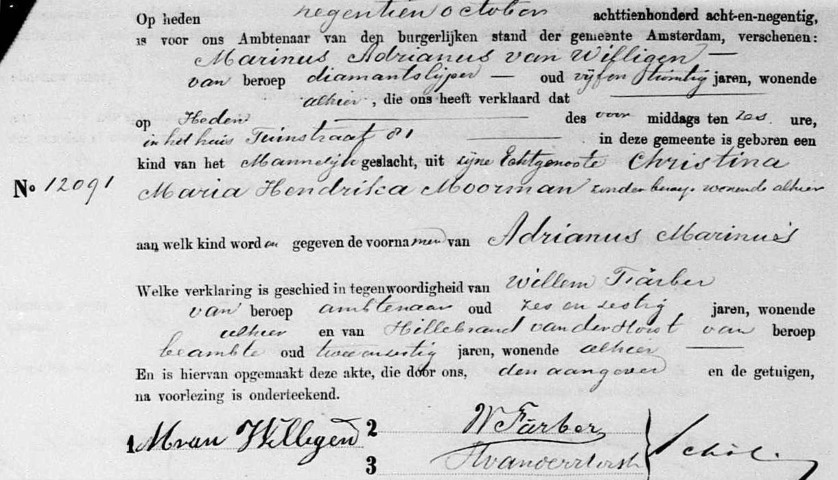 Op heden negentien october achttienhonderd acht-en-negentig,
is voor ons Ambtenaar van den burgerlijken stand der gemeente Amsterdam, verschenen:
Marinus Adrianus van Willigen —
van beroep diamantslijper — oud vijf en twintig jaren, wonende
alhier, die ons heeft verklaard dat
op Heden — des voor middags ten zes ure,
in het huis Tuinstraat 81 — in deze gemeente is geboren een
kind van het Mannelijk geslacht, uit zijne Echtgenoote Christina
No 12091 Maria Hendrika Moorman zonder beroep wonende alhier
aan welk kind worden gegeven de voornamen van Adrianus Marinus
Welke verklaring is geschied in tegenwoordigheid van Willem Färber
van beroep ambtenaar oud zes en zestig jaren, wonende
alhier en van Hillebrand van der Horst van beroep
beambte oud jaren, wonende alhier —
En is hiervan opgemaakt deze akte, die door ons, den aangever en de getuigen,
na voorlezing is onderteekend.
1 M van Willegen 2 W Färber
3 H van der Horst